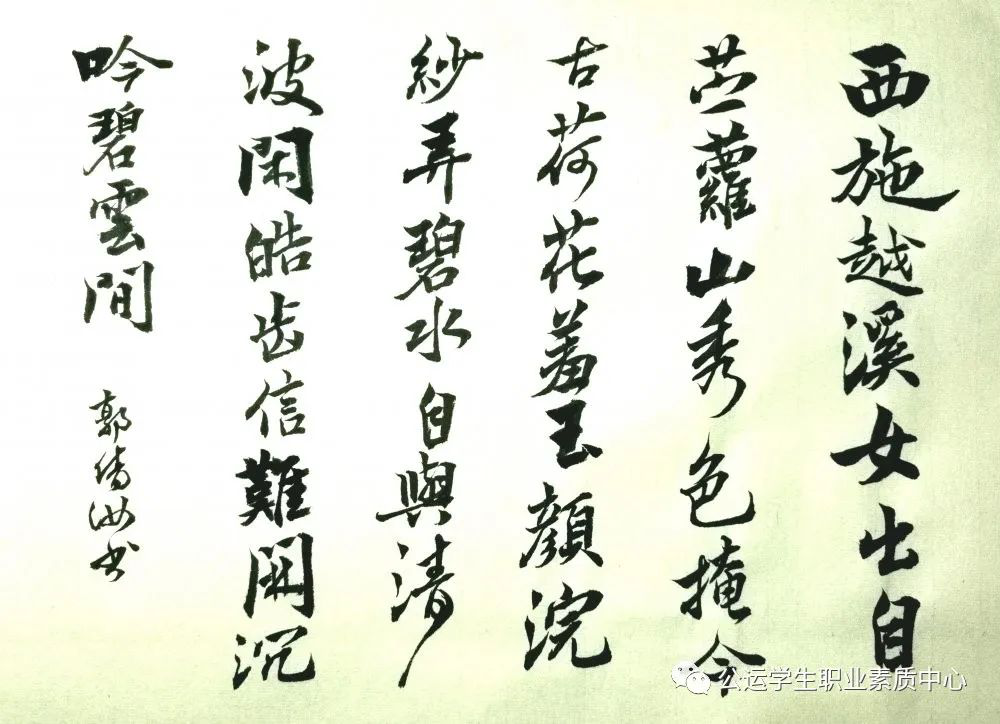 西施越溪女出自
苎蘿山秀色掩今
古荷花羞玉顏浣
紗弄碧水自與清
波閑皓齿信難開沉
吟碧雲間
郭倩汝书
公运学生职业素质中心